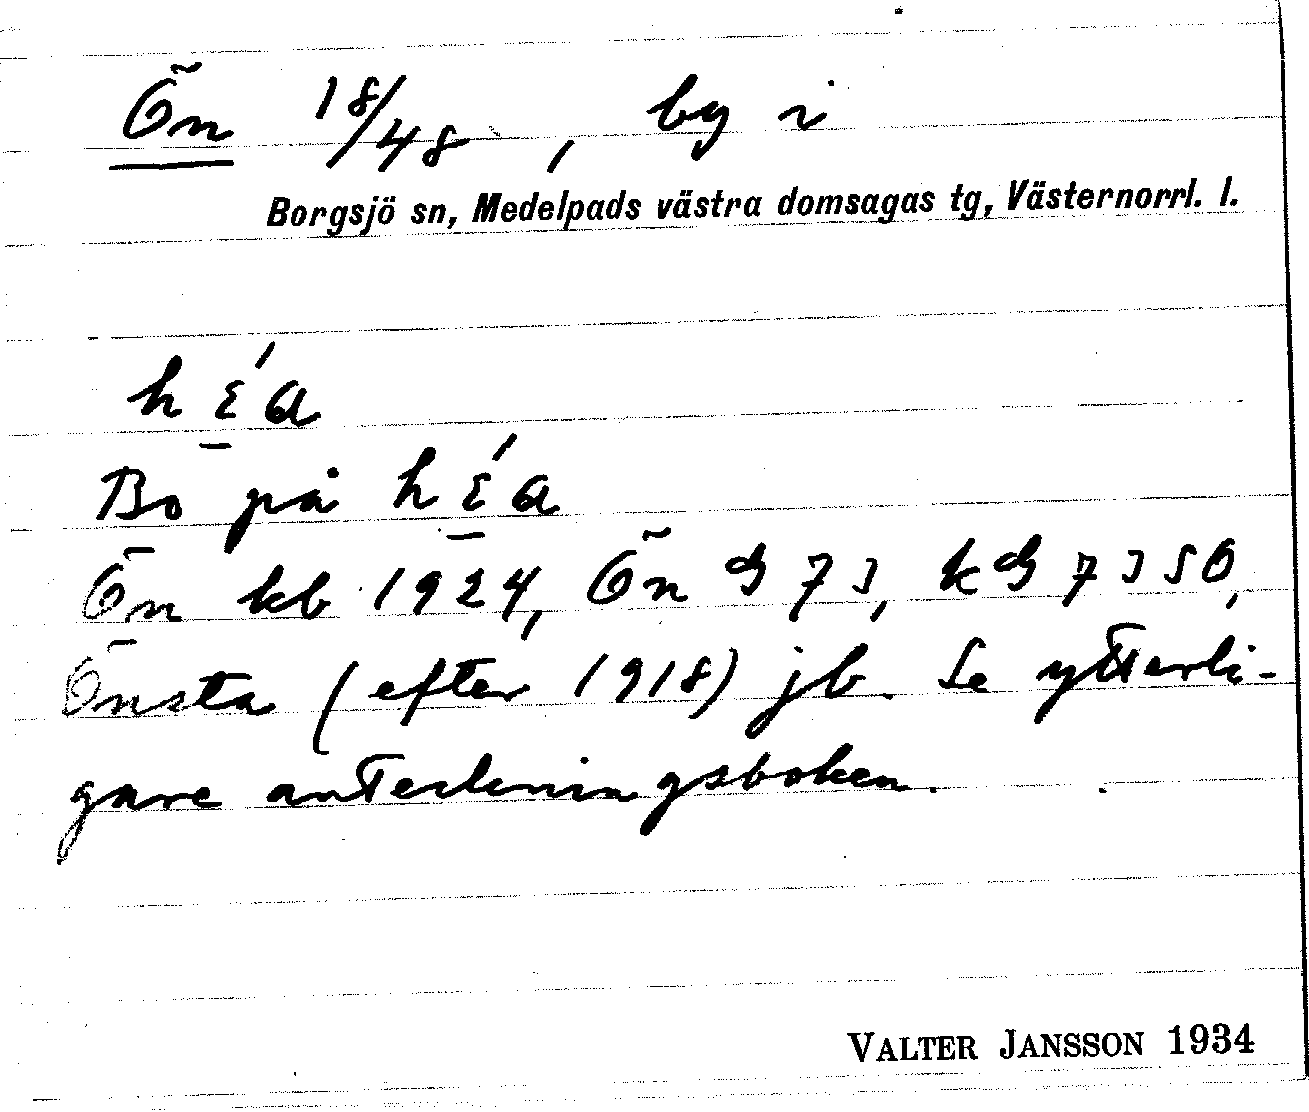 Ön 18/48, by i
Borgsjö sn, Medelpads västra domsagas tg, Västernorrl. l.
hɛ́a
Bo på hɛ́a
Ön kb 1924, Ön G 73, kG 73 SO,
Önsta (efter 1918) jb. Se ytterli-
gare anteckningsboken.
VALTER JANSSON 1934